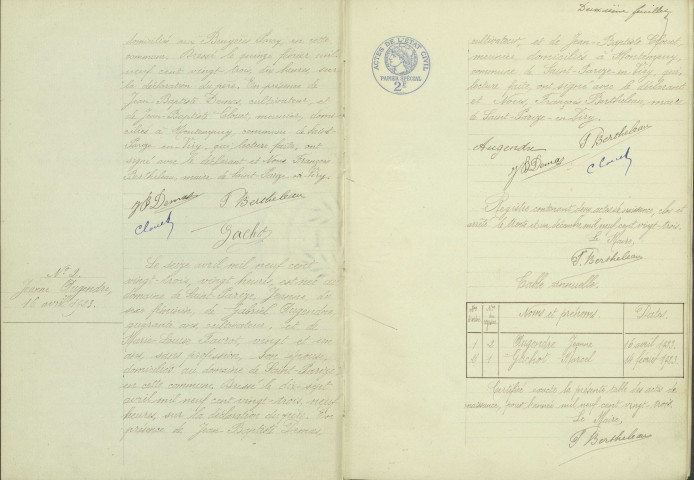 domiciliés aux Bruyères Jorry, en cette
commune. Dressé le quinze février mil
neuf cent vingt trois, dix heures, sur
la déclaration du père. En présence de
Jean-Baptiste Demas, cultivateur, et
de Jean-Baptiste Clouet, meunier, domi-
ciliés à Montempuy, commune de Saint-
Parize-en-Viry, qui, lecture faite, ont
signé avec le déclarant et Nous François
Berthelean, maire de Saint-Parize-en-Viry.
J.B. Demas F. Berthelean
Clouet
Gachot
N° 2.
Jeanne Augendre,
16 avril 1923.
Le seize avril mil neuf cent
vingt-trois, vingt heures, est née au
domaine de Saint-Parize, Jeanne, du
sexe féminin, de Gabriel Augendre,
quarante ans, cultivateur, et de
Marie-Louise, vingt et un
ans, sans profession, son épouse,
domiciliés au domaine de Saint-Parize
en cette commune. Dressé le dix-sept
avril mil neuf cent vingt-trois, neuf
heures, sur la déclaration du père. En
présence de Jean-Baptiste Demas,
Deuxième feuillet
ACTES DE L'ÉTAT CIVIL
PAPIER SPÉCIAL
2F
cultivateur, et de Jean-Baptiste Clouet,
meunier, domiciliés à Montempuy,
commune de Saint-Parize-en-Viry, qui,
lecture faite, ont signé avec le déclarant
et Nous, François Berthelean, maire
de Saint-Parize-en-Viry.
Augendre F. Berthelean
J.B. Demas Clouet
Registre contenant deux actes de naissance, clos et
arrêté le trente et un décembre mil neuf cent vingt-trois.
Le Maire,
F. Berthelean
Table annuelle.
Noms et prénoms. Dates.
1 2 Augendre Jeanne 16 avril 1923.
1 1 Gachot Marcel 14 février 1923.
Certifiée exacte la présente table des actes de
naissance, pour l'année mil neuf cent vingt-trois.
Le Maire,
F. Berthelean